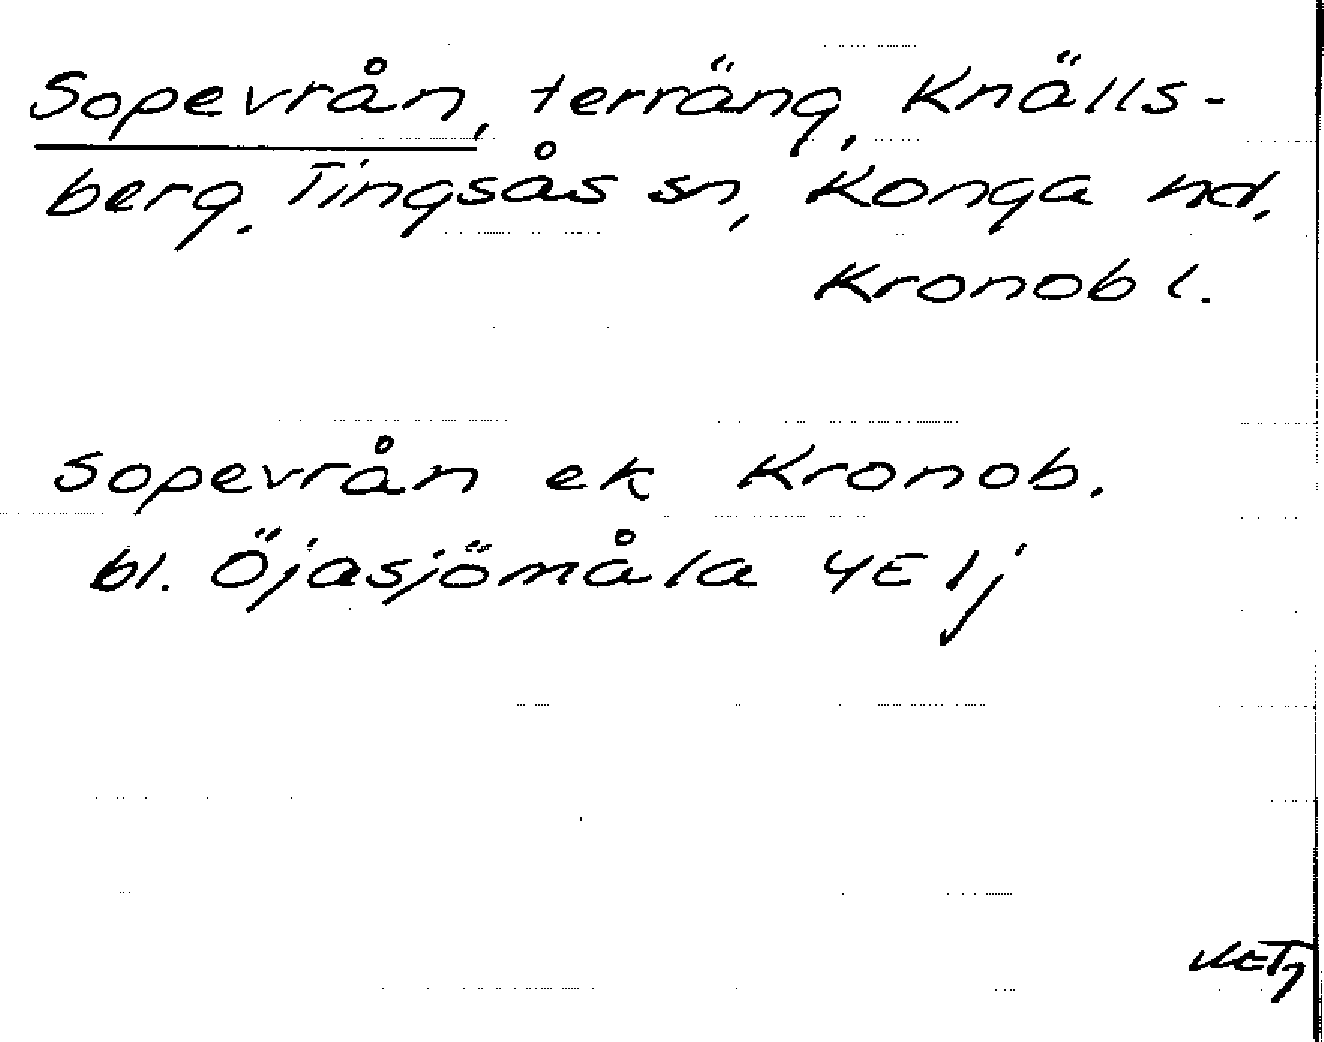 Sopevrån, terräng, Knälls-
berg. Tingsås sn, Konga hd,
Kronob l.
Sopevrån ek Kronob.
bl. Öjasjömåla 4E 1j